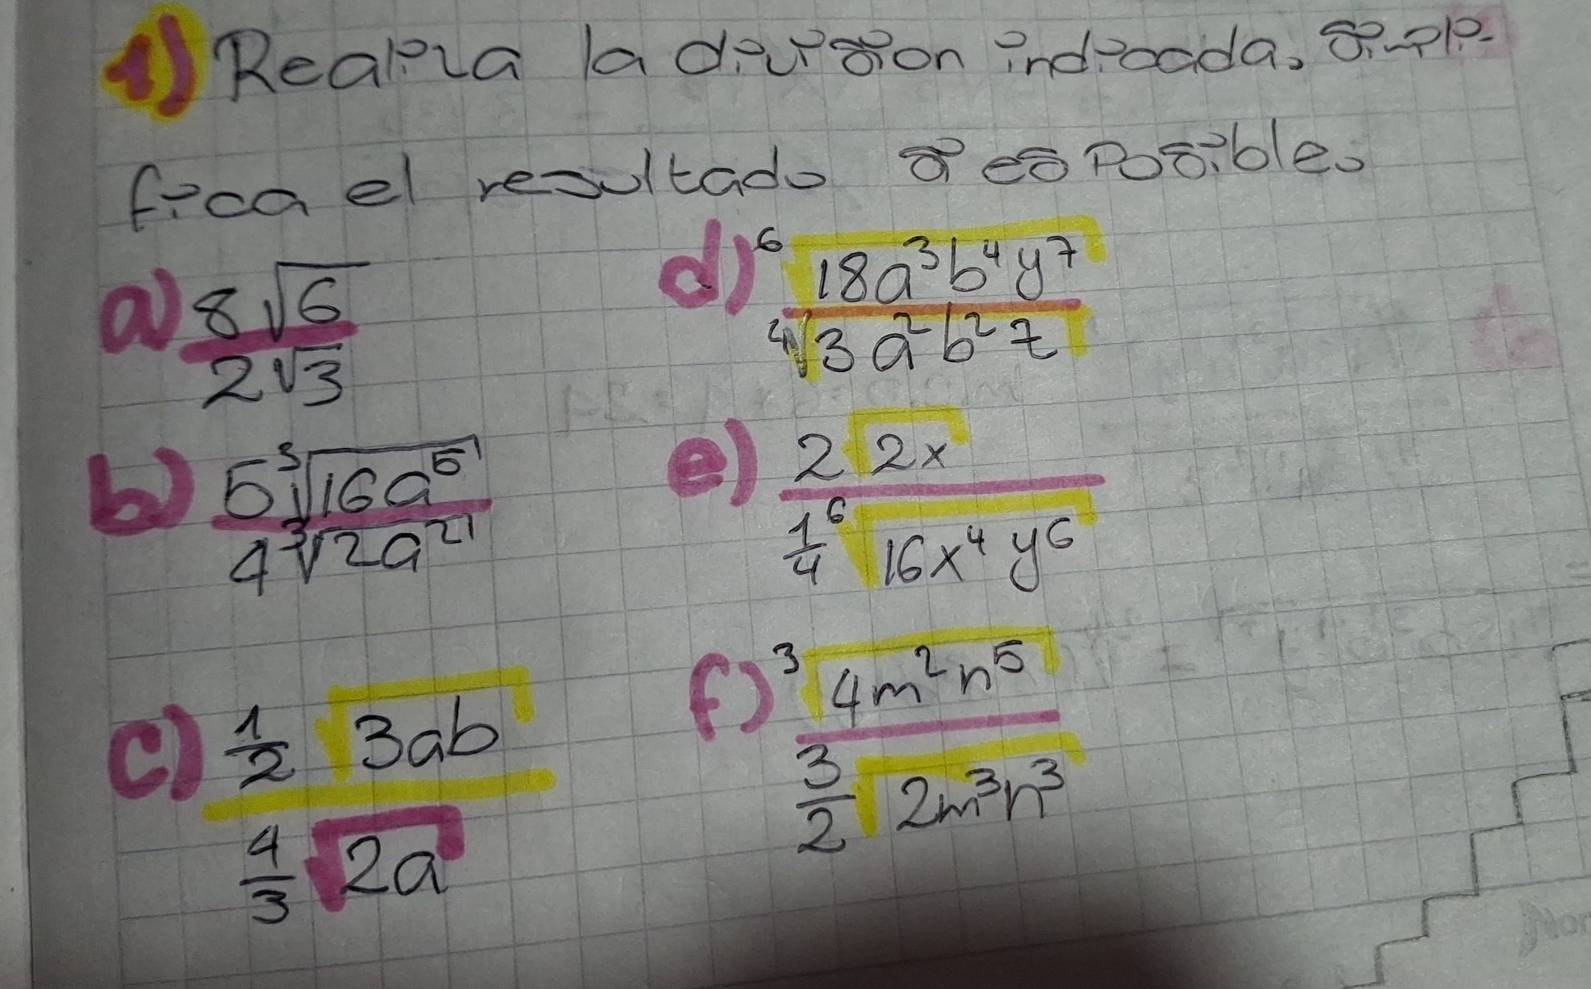 1) Realiza la división indicada, simpli-
fica el resultado si es Posible.
a) 8√6 / 2√3
b) 5∛16a⁵ / 4∛2a²
c) 1/2 √3ab / 4/3 √2a
d) ⁶√18a³b⁴y⁷ / ⁴√3a²b²z
e) 2√2x / 1/4 ⁶√16x⁴y⁶
f) ³√4m²n⁵ / 3/2 √2m³n³